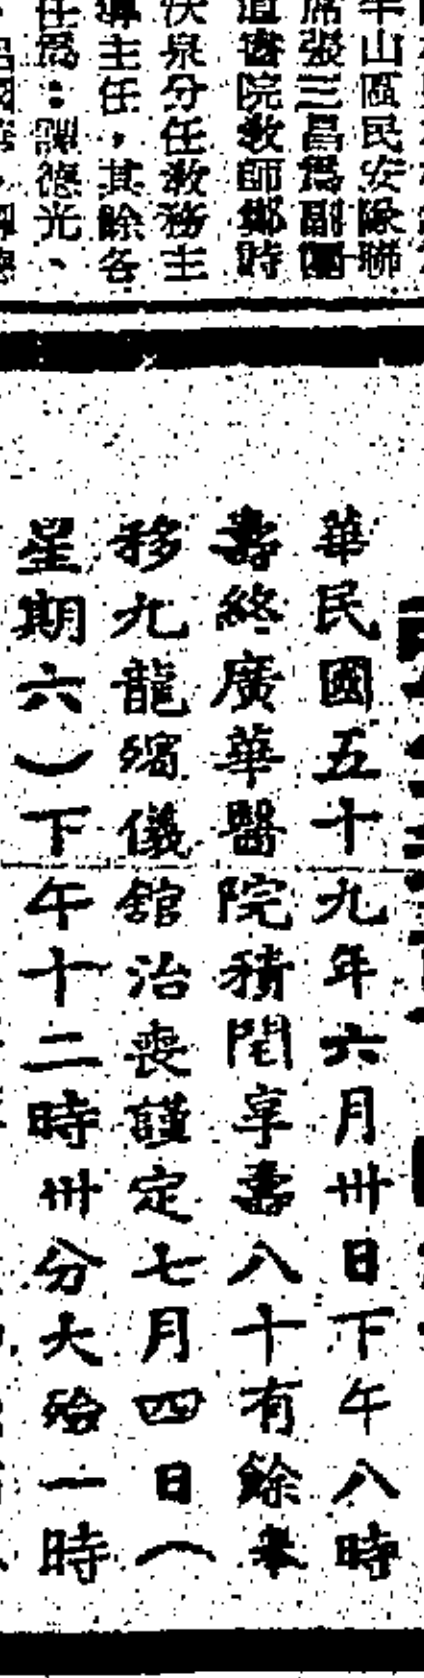 半山區民安隊聯
席張三昌為副團
道書院教師鄭時
伏泉分任教務主
導主任，其餘各
任為：譚德光、
華民國五十九年六月卅日下午八時
壽終廣華醫院積閏享壽八十有餘奉
移九龍殯儀舘治喪謹定七月四日（
星期六）下午十二時卅分大殮一時